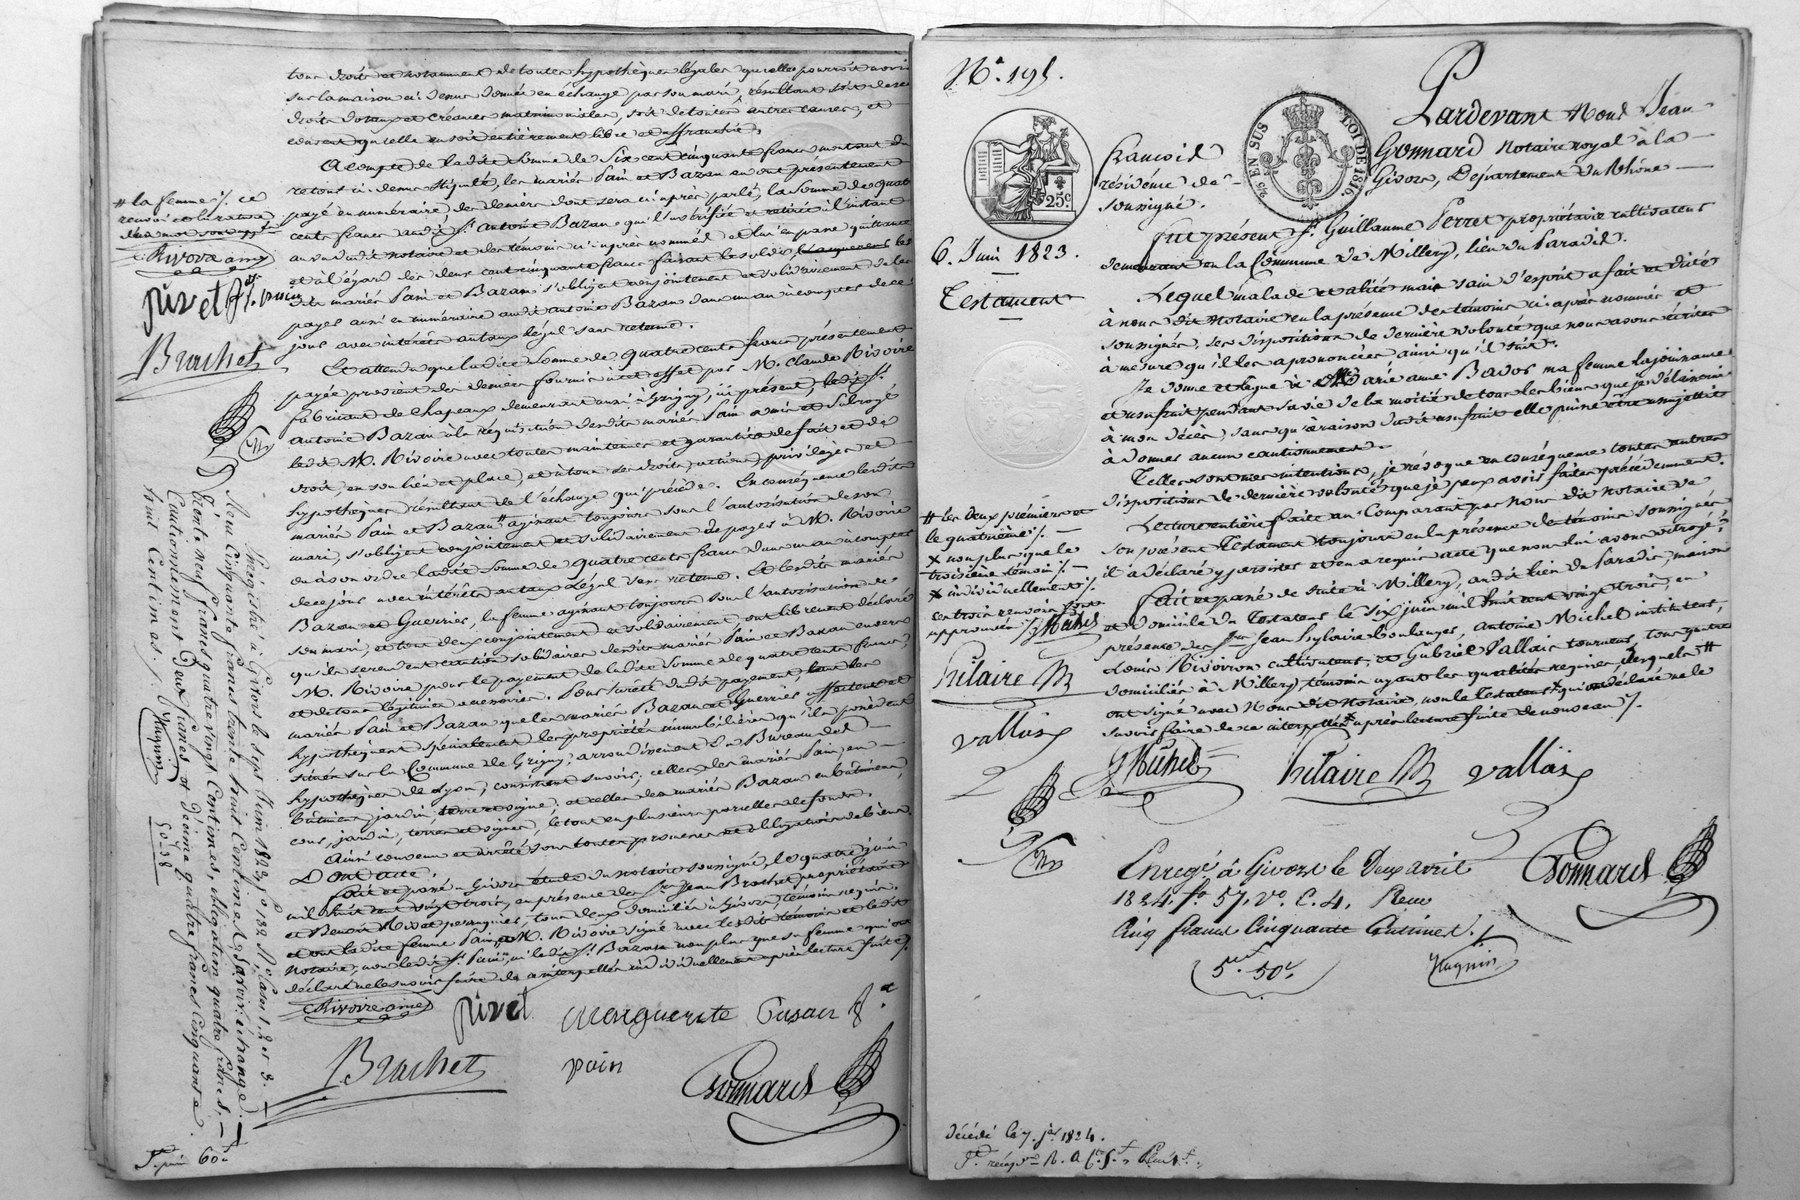 tous droits et notamment de toutes hypothèques légales qu'elles pourroit avoir
sur la maison ci-dessus donnée en échange par son mari, résultant soit de ses
droits dotaux et créances matrimoniales, soit de toutes autres causes, et
consent qu'elle en soit entièrement libre et affranchie,
A compte de ladite somme de Six cent cinquante francs montant du
retour ci-dessus stipulé, les mariés Pain et Bazan en ont présentement
payé en numéraire des deniers dont sera ci après parlé, la somme de quatre
cents francs audit Sr. Antoine Bazan qui l'a vérifiée et retirée à l'instant
au vu dudit notaire et des témoins ci-après nommés et lui en passe quittance
et à l'égard des deux cent cinquante francs faisant le solde, lesdits
mariés Pain et Bazan s'obligent conjointement et solidairement de les
payer aussi en numéraire audit Antoine Bazan dans un an à compter de ce
jour avec intérêts au taux légal sans retenue.
Et attendu que ladite Somme de quatre cents francs présentement
payée provient des deniers fournis à cet effet par M. Claude Rivoire
fabricant de chapeaux demeurant aussi à Grigny, ici présent, ledit Sr.
Antoine Bazan à la réquisition desdits mariés Pain a mis et subrogé
ledit M. Rivoire avec toutes maintenues et garanties de fait et de
droit, en son lieu et place, et à tous ses droits, actions, privilèges et
hypothèques résultant de l'échange qui précède. En conséquence lesdits
mariés Pain et Bazan # agissant toujours sous l'autorisation de son
mari, s'obligent conjointement et solidairement de payer à M. Rivoire
ou à son ordre ladite somme de quatre cents francs dans un an à compter
de ce jour avec intérêts au taux légal sans retenue. Et lesdits mariés
Bazan et Guerrier, la femme agissant toujours sous l'autorisation de
son mari, et tous deux conjointement et solidairement ont librement déclaré
qu'ils se rendent caution solidaires desdits mariés Pain et Bazan envers
M. Rivoire pour le payement de ladite somme de quatre cents francs,
et de tous légitimes accessoires. Pour sureté dudit payement, tant les
mariés Pain et Bazan que les mariés Bazan et Guerrier affectent et
hypothèquent spécialement les propriétés immobilières qu'ils possèdent
situées sur la Commune de Grigny, arrondissement du Bureau des
hypothèques de Lyon, consistant savoir, celles des mariés Pain, en
bâtiment, jardin, terre et vigne, et celles des mariés Bazan en bâtiment,
cour, jardin, terres et vignes, le tout en plusieurs parcelles de fonds.
Ainsi convenu et arrêté sous toutes promesses et obligations de biens.
Dont acte,
Fait et passé à Givors étude du notaire soussigné, le quatre juin
mil huit cent vingt trois, en présence des Srs. Jean Brachet propriétaire
et Benoit Rivat perruquier, tous deux domiciliés à Givors, témoins requis,
et ont ladite femme Pain, M. Rivoire signé avec lesdits témoins et ledit
Notaire, non ledit Sr. Bazan non plus que sa femme qui ont
déclaré ne le savoir faire de ce interpellés individuellement après lecture faite.
Rivoire ainé
pivet
Marguerite
Brachet
pain
Gonnard
# la femme /. ce
renvoi et la rature
Rivoire ainé
pivet
Brachet
Enregistré à Givors le sept Juin 1823, fo. 132 Vo. Cases 1. 2 et 3.
Reçu Cinquante francs trente huit Centimes, Savoir: échange
trente neuf francs quatre vingt Centimes, obligation quatre francs,
Cautionnement Deux francs et Dixième quatre francs Cinquante
huit Centimes. /.
Hugnin
50.38
60.
No. 195.
25 c.
25 c. EN SUS
LOI DE 1816.
Pardevant Nous Jean
François Gonnard Notaire royal à la
résidence de Givors, Département du Rhône
soussigné.
6. Juin 1823.
Testament
Fut présent Sr. Guillaume Perret propriétaire cultivateur
demeurant en la Commune de Millery, lieu du Paradis.
Lequel malade et alité mais sain d'esprit a fait et dicté
à nous dit Notaire en la présence des témoins ci-après nommés et
soussignés, ses dispositions de dernière volonté que nous avons écrites
à mesure qu'il les a prononcées ainsi qu'il suit.
Je donne et lègue à Marie anne Bador ma femme la jouissance
et usufruit pendant sa vie de la moitié de tous les biens que je délaisserai
à mon décès, sans qu'à raison dudit usufruit elle puisse être assujettie
à donner aucun cautionnement.
Telles sont mes intentions, je révoque en conséquence toutes autres
dispositions de dernière volonté que je peux avoir faites précédemment.
Lecture entière faite au Comparant par Nous dit Notaire de
son présent Testament toujours en la présence des témoins soussignés
il a déclaré y persister et en a requis acte que nous lui avons octroyé.
Fait et passé de suite à Millery, audit lieu du Paradis, maison
et domicile du Testateur le six juin mil huit cent vingt trois, en
présence des Srs. Jean hylaire boulanger, Antoine Michel instituteur,
Louis Rivoiron cultivateur, et Gabriel Vallais tourneur, tous quatre
domiciliés à Millery, témoins ayant les qualités requises, desquels #
ont signé avec Nous dit Notaire, non le Testateur x qui ont déclaré ne le
savoir faire de ce interpellés x après lecture faite de nouveau /.
# les deux premiers et
le quatrième /.
x non plus que le
troisième témoin /.
x individuellement /.
ces trois renvois sont
approuvés /. Michel
hilaire
vallais
Michel
hilaire
vallais
Gonnard
Enregé. à Givors le Deux avril
1824. fo. 57. Vo. C. 4. Reçu
Cinq francs Cinquante Centimes. /.
5f. 50c.
Hugnin
Décédé le 7. jer. 1824.